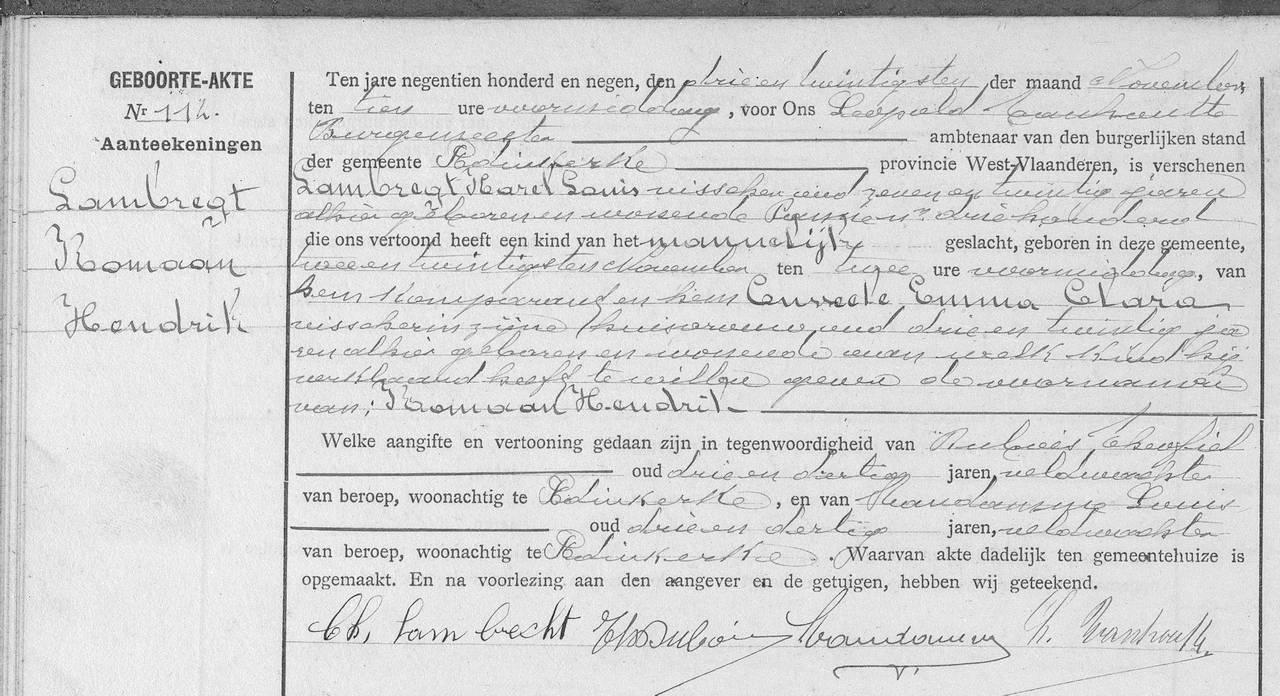 GEBOORTE-AKTE
Nr 112.
Aanteekeningen
Lambregt
Romaan
Hendrik
Ten jare negentien honderd en negen, den drie en twintigsten, der maand November
ten tien ure voormiddag, voor Ons Leopold Vanhoutte
Burgemeester ambtenaar van den burgerlijken stand
der gemeente Adinkerke provincie West-Vlaanderen, is verschenen
Lambregt Karel Louis visscher oud zeven en twintig jaren
alhier geboren en wonende Panne nr driehonderd
die ons vertoond heeft een kind van het mannelijk geslacht, geboren in deze gemeente,
twee en twintigsten November ten twee ure voormiddag, van
hem komparand en hem Emma Clara
visscherin zijne huisvrouw oud drie en twintig ja
ren alhier geboren en wonende aan welk kind hij
verklaard heeft te willen geven de voornamen
van: Romaan Hendrik
Welke aangifte en vertooning gedaan zijn in tegenwoordigheid van
oud drie en dertig jaren, veldwachter
van beroep, woonachtig te Adinkerke, en van Vandamme Louis
oud drie en dertig jaren, veldwachter
van beroep, woonachtig te Adinkerke. Waarvan akte dadelijk ten gemeentehuize is
opgemaakt. En na voorlezing aan den aangever en de getuigen, hebben wij geteekend.
Ch, Lambrecht Vandamme L. Vanhoutte